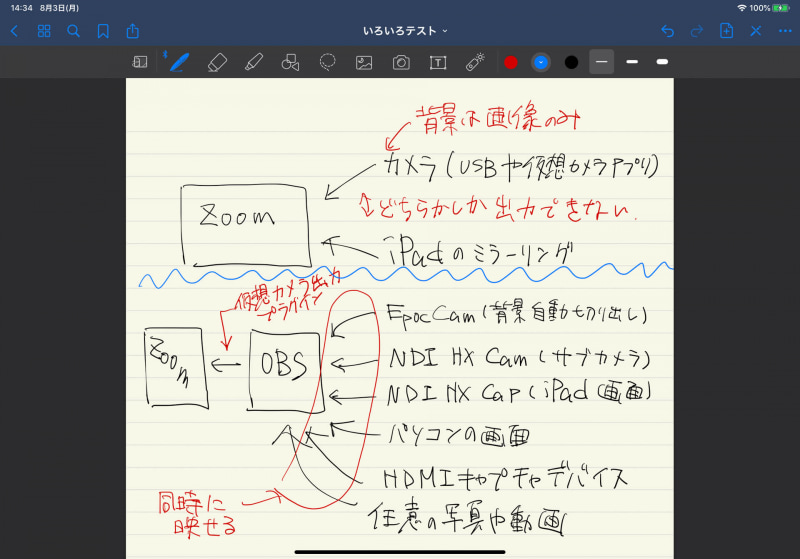 14:34 8月3日(月)
100%
いろいろテスト
背景は画像のみ
カメラ(USBや仮想カメラアプリ)
Zoom
↕どちらかしか出力できない.
iPadのミラーリング
仮想カメラ出力
プラグイン
EpocCam(背景自動切り出し)
Zoom
OBS
NDI HX Cam(サブカメラ)
NDI HX Cap(iPad画面)
パソコンの画面
HDMIキャプチャデバイス
同時に
映せる
任意の写真や動画